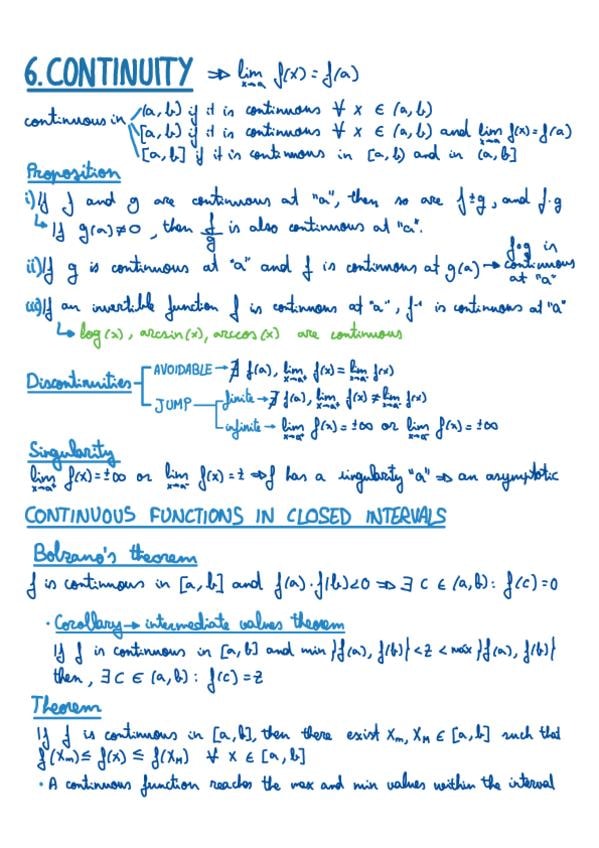 6. CONTINUITY ⇒ lim x→a f(x) = f(a)
continuous in (a, b) if it is continuous ∀ x ∈ (a, b)
[a, b) if it is continuous ∀ x ∈ (a, b) and lim x→a⁺ f(x) = f(a)
[a, b] if it is continuous in [a, b) and in (a, b]
Proposition
i) If f and g are continuous at "a", then so are f ± g, and f · g
↳ If g(a) ≠ 0, then f/g is also continuous at "a".
ii) If g is continuous at "a" and f is continuous at g(a) → f∘g is continuous at "a"
iii) If an invertible function f is continuous at "a", f⁻¹ is continuous at "a"
↳ log(x), arcsin(x), arccos(x) are continuous
Discontinuities
AVOIDABLE → ∄ f(a), lim x→a⁺ f(x) = lim x→a⁻ f(x)
JUMP
finite → ∄ f(a), lim x→a⁺ f(x) ≠ lim x→a⁻ f(x)
infinite → lim x→a⁺ f(x) = ±∞ or lim x→a⁻ f(x) = ±∞
Singularity
lim x→a⁺ f(x) = ±∞ or lim x→a⁻ f(x) = ± ⇒ f has a singularity "a" ⇒ an asymptotic
CONTINUOUS FUNCTIONS IN CLOSED INTERVALS
Bolzano's theorem
f is continuous in [a, b] and f(a) · f(b) < 0 ⇒ ∃ c ∈ (a, b): f(c) = 0
· Corollary → intermediate values theorem
If f is continuous in [a, b] and min }f(a), f(b){ < z < max }f(a), f(b){
then, ∃ c ∈ (a, b): f(c) = z
Theorem
If f is continuous in [a, b], then there exist Xm, XM ∈ [a, b] such that
f(Xm) ≤ f(x) ≤ f(XM) ∀ x ∈ [a, b]
· A continuous function reaches the max and min values within the interval